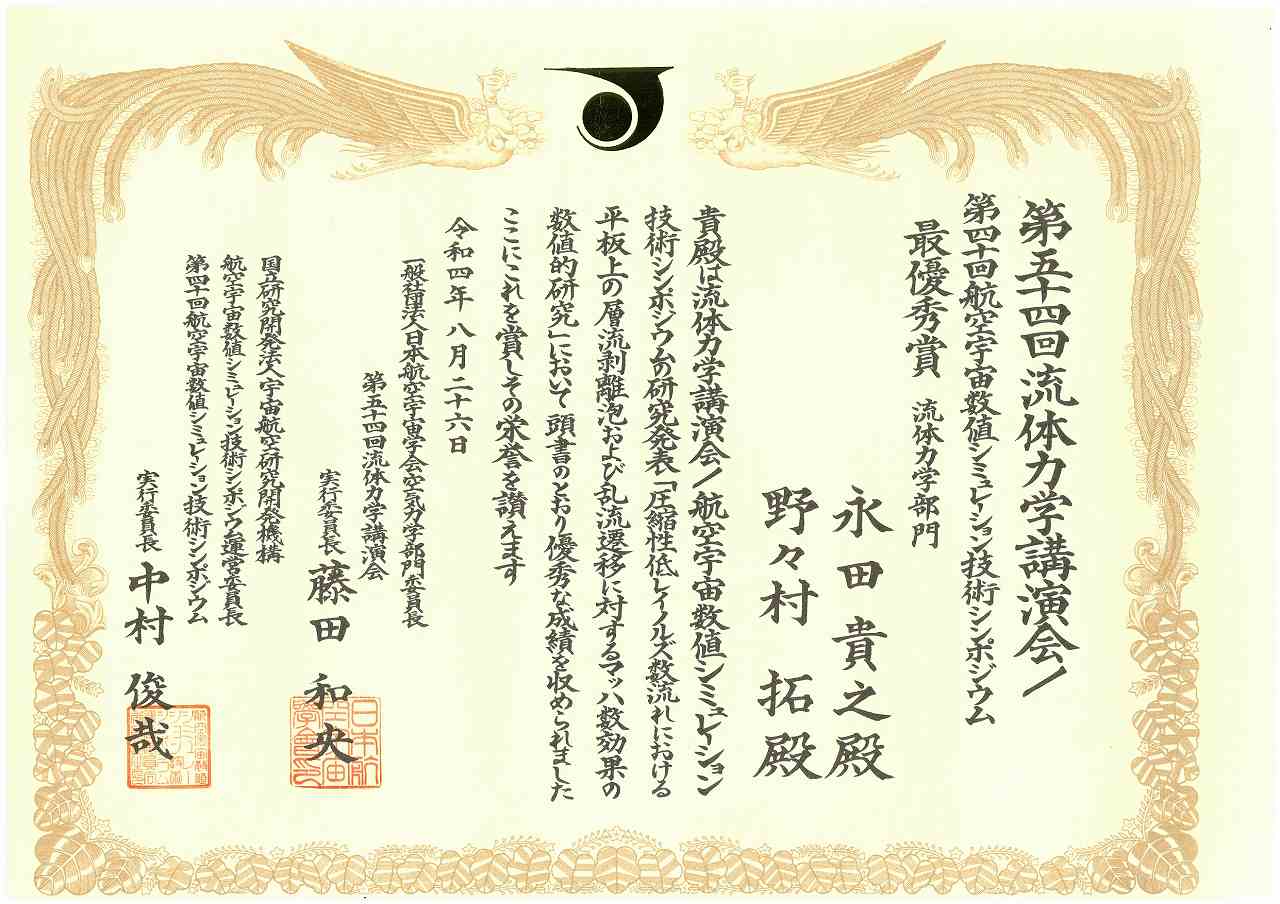 第五十四回流体力学講演会/
第四十回航空宇宙数値シミュレーション技術シンポジウム
最優秀賞 流体力学部門
永田 貴之殿
野々村 拓殿
貴殿は流体力学講演会/航空宇宙数値シミュレーション
技術シンポジウムの研究発表「圧縮性低レイノルズ数流れにおける
平板上の層流剥離泡および乱流遷移に対するマッハ数効果の
数値的研究」において頭書のとおり優秀な成績を収められました
ここにこれを賞しその栄誉を讃えます
令和四年八月二十六日
一般社団法人日本航空宇宙学会空気力学部門委員長
第五十四回流体力学講演会
実行委員長 藤田 和央
日本航空宇宙學會印
国立研究開発法人宇宙航空研究開発機構
航空宇宙数値シミュレーション技術シンポジウム運営委員長
第四十回航空宇宙数値シミュレーション技術シンポジウム
実行委員長 中村 俊哉